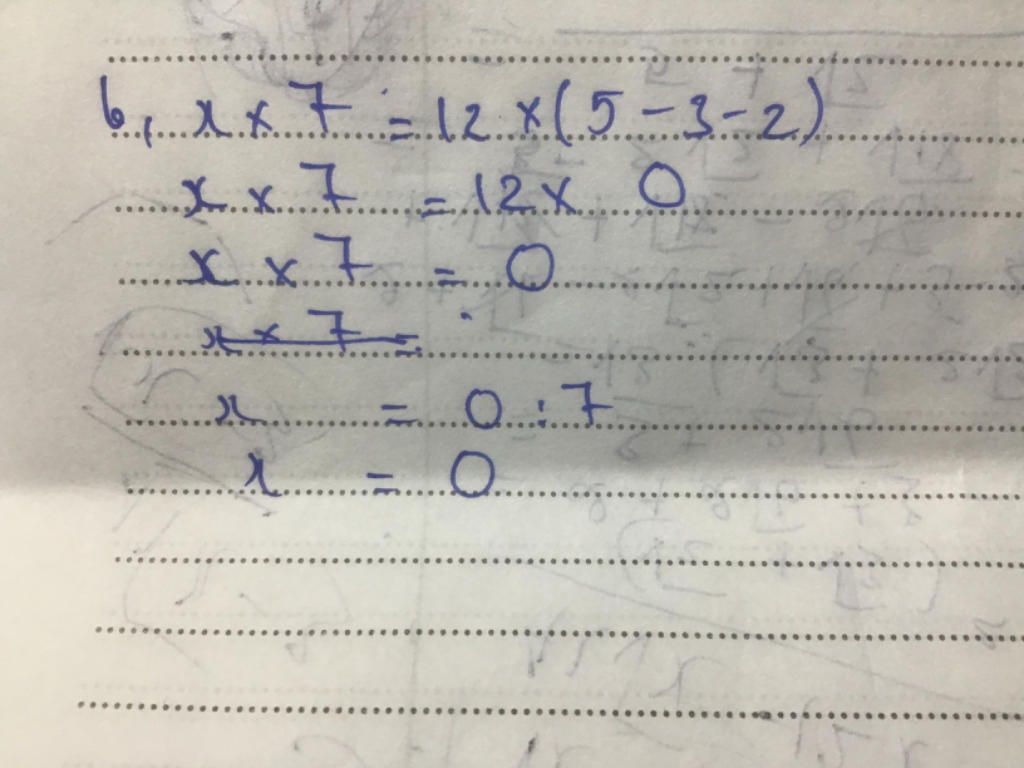 b, x × 7 = 12 × (5 - 3 - 2)
x × 7 = 12 × 0
x × 7 = 0
x × 7 =
x = 0 : 7
x = 0